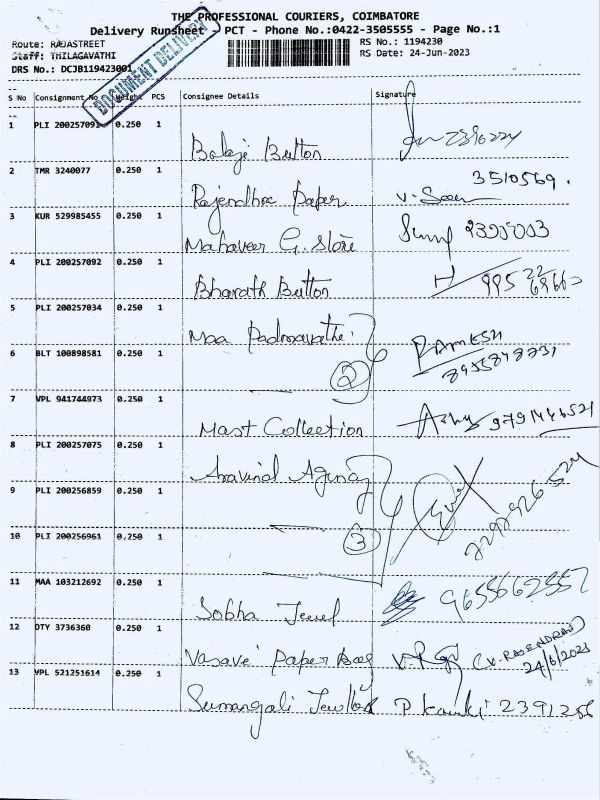 THE PROFESSIONAL COURIERS, COIMBATORE
Delivery Runsheet - PCT - Phone No.:0422-3505555 - Page No.:1
Route: RAJASTREET RS No.: 1194230
Staff: THILAGAVATHI RS Date: 24-Jun-2023
DRS No.: DCJB119423001
DOCUMENT DELIVERY
S No Consignment No Weight PCS Consignee Details Signature
1 PLI 200257091 0.250 1
Balaji Button
2 TMR 3240077 0.250 1
Rajendhra Paper 3510569.
3 KUR 529985455 0.250 1
Mahaveer G. Store
4 PLI 200257092 0.250 1
Bharath Button
5 PLI 200257034 0.250 1
Maa Padmavathi
RAMESH
6 BLT 100898581 0.250 1
2
7 VPL 941744973 0.250 1
Mast Collection 9791446521
8 PLI 200257075 0.250 1
Aravind Agency
9 PLI 200256859 0.250 1
10 PLI 200256961 0.250 1
3
11 MAA 103212692 0.250 1
Sobha Jewel 9655662557
12 DTY 3736360 0.250 1
Vasavi Paper Bag (V. RAJENDRAN)
24/6/2023
13 VPL 521251614 0.250 1
Sumangali